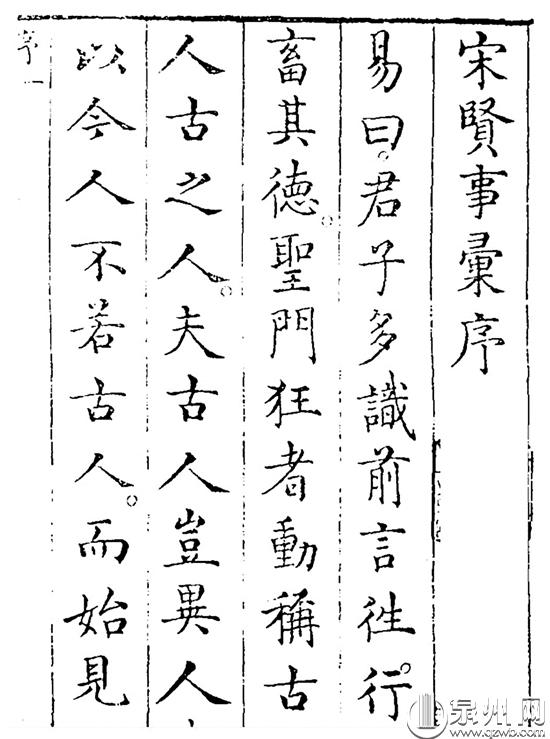 宋賢事彙序
易曰君子多識前言往行
畜其德聖門狂者動稱古
人古之人夫古人豈異人
以今人不若古人而始見
序一
泉州网
www.qzwb.com